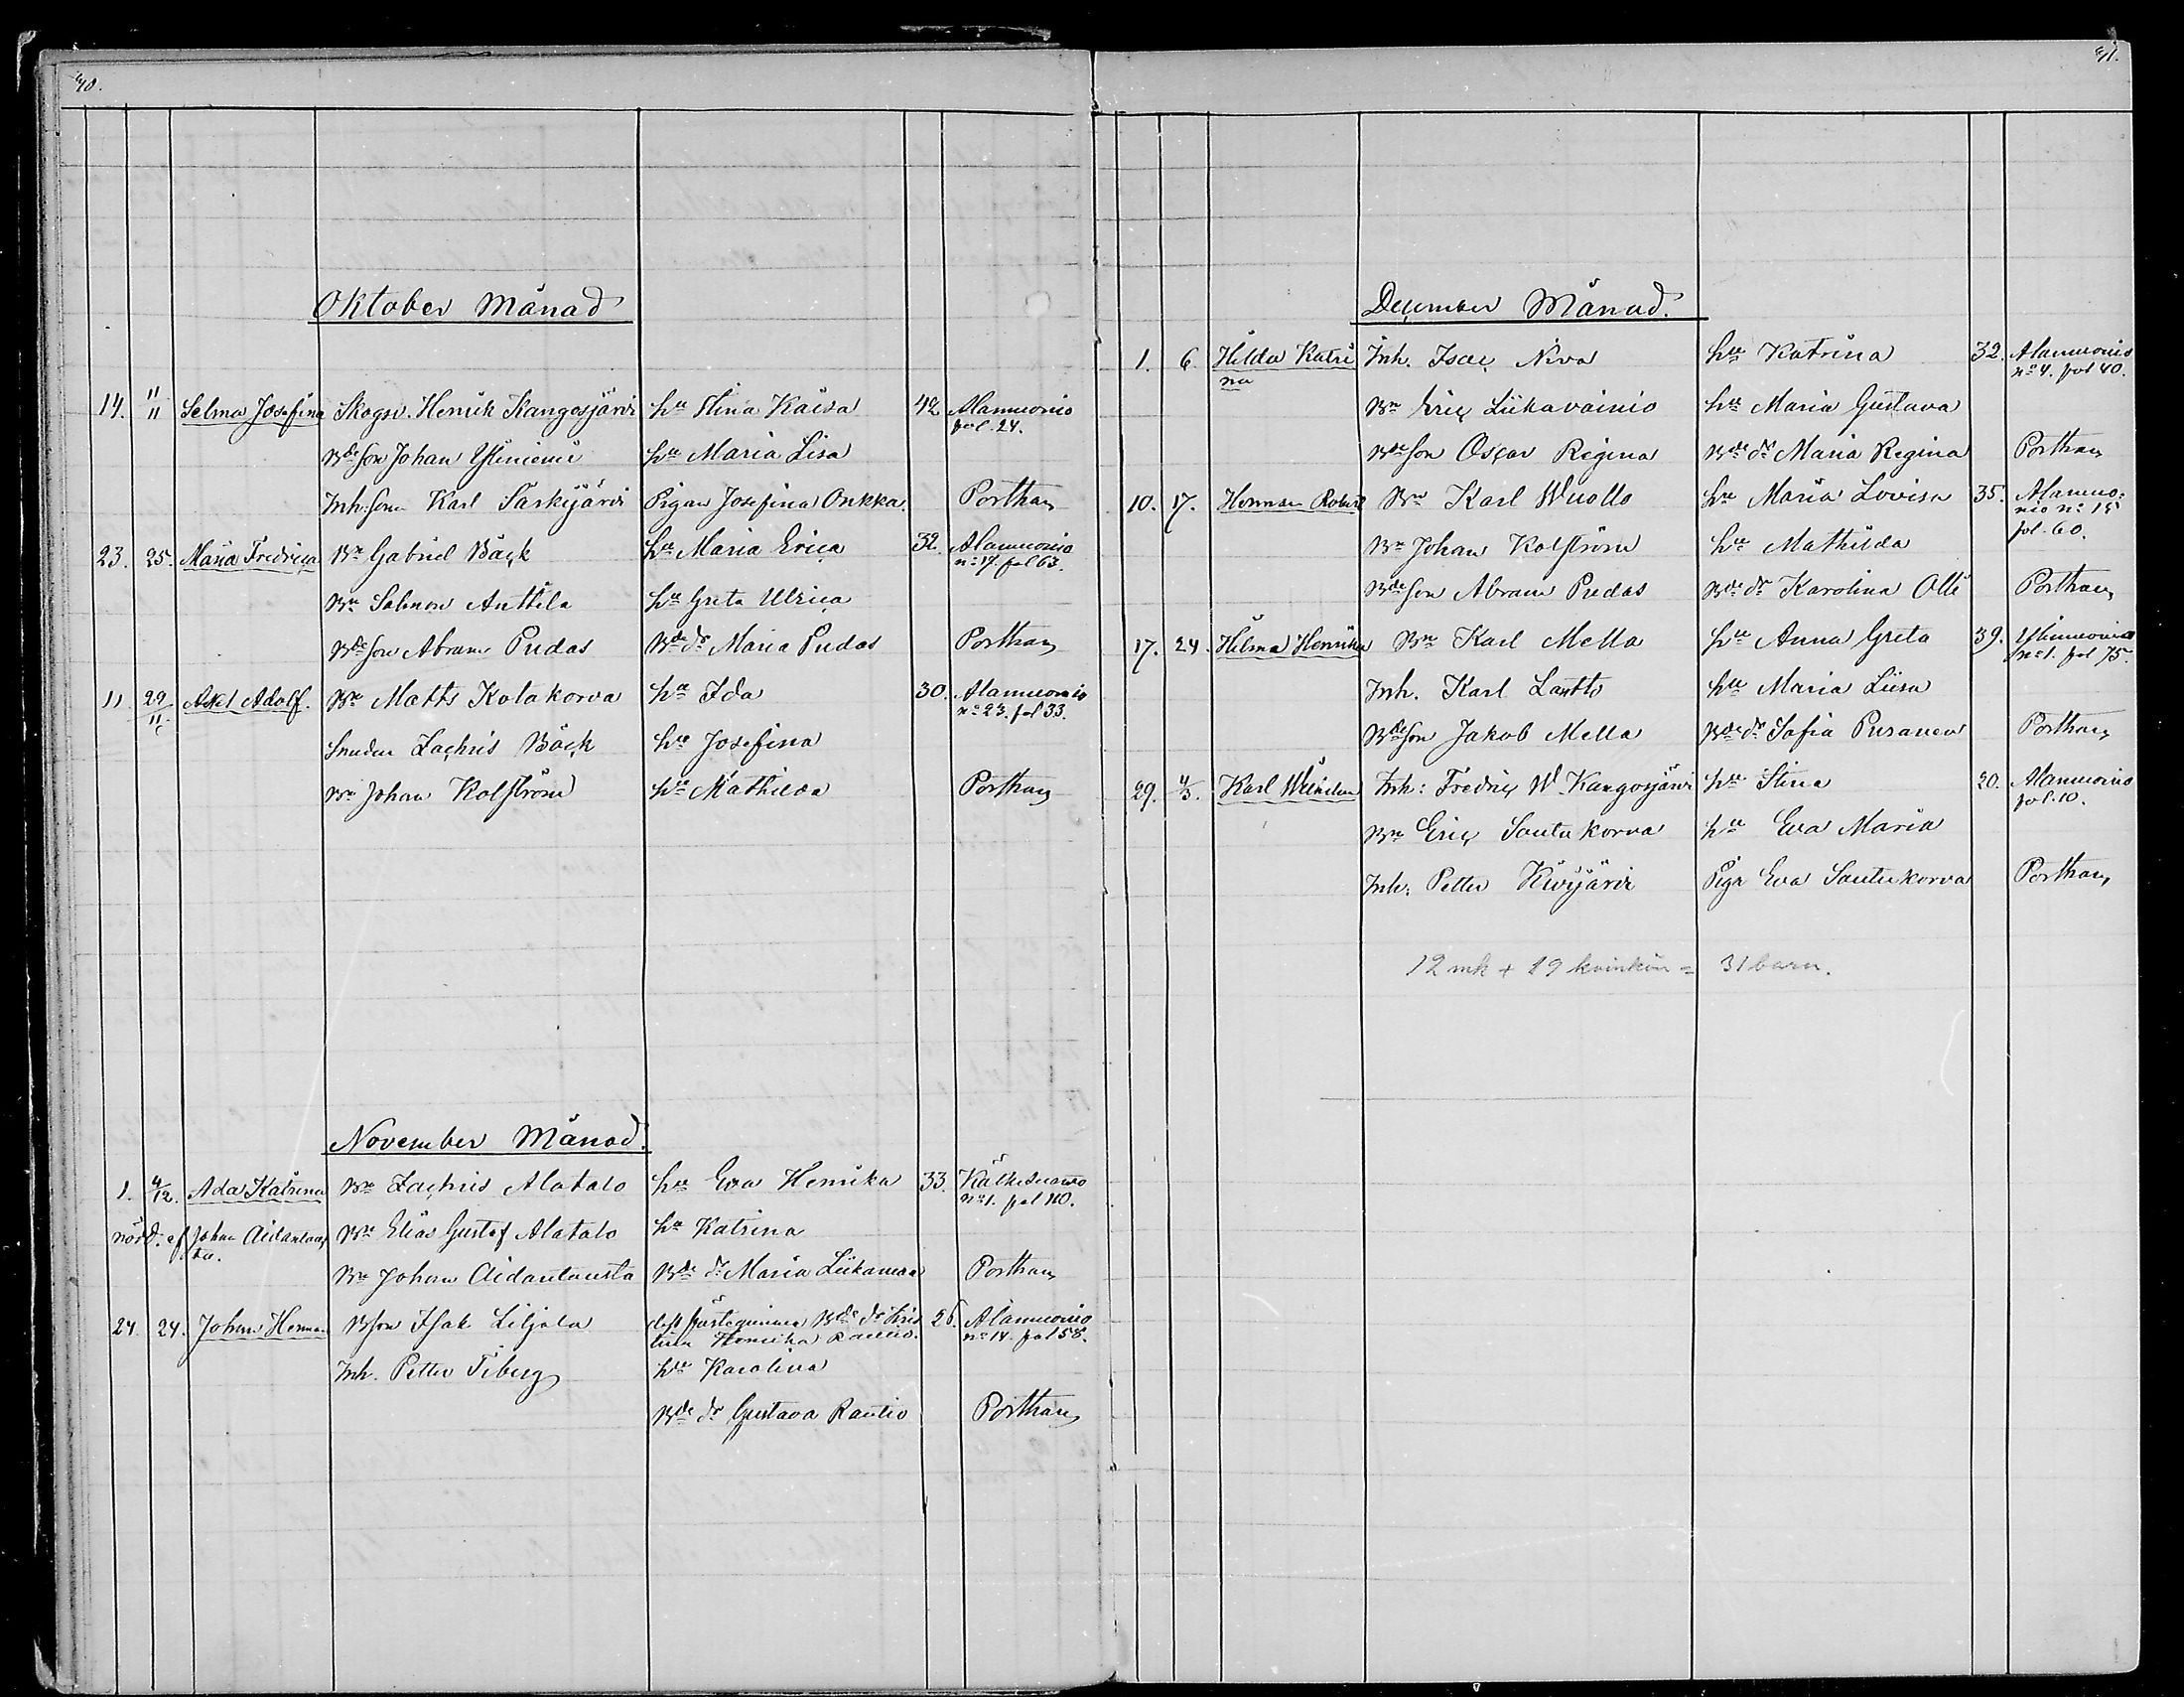 40.
Oktober Månad
14. 11/11 Selma Josefina Skogsv. Henrik Kangosjärvi hu Stina Kaisa 42 Alamuonio
fol. 24.
Bde son Johan Yliniemi hu Maria Lisa
Inh. son Karl Särkijärvi Pigan Josefina Onkka. Porthan
23. 25. Maria Fredrica Bn Gabriel Bäck hu Maria Erica 32. Alamuonio
no 17. fol 63.
Bn Salmon Anttila hu Greta Ulrica
Bde son Abram Pudas Bde dr Maria Pudas Porthan
11. 29/11. Axel Adolf. Bn Matts Kolakorva hu Ida 30. Alamuonio
no 23. fol 33.
Smeden Zachris Bäck hu Josefina
Bn Johan Kolström hu Mathilda Porthan
November Månad.
1. 4/12. Ada Katrina Bn Zachris Alatalo hu Eva Henrika 33. Kätkesuando
no 1. fol 110.
nöd. af Johan Aidantaus Bn Elias Gustaf Alatalo hu Katrina
ta.
Bn Johan Aidantausta Bde dr Maria Liikamaa Porthan
24. 24. Johan Herman Bson Isak Liljala fästeqvinna Bde dr Kris 26. Alamuonio
tina Henrika Rautio. no 14. fol 58.
Inh. Petter Fiberg hu Karolina
Bde dr Gustava Rautio Porthan
41.
December Månad.
1. 6. Hilda Katri Inh. Isac Niva hu Katrina 32. Alamuonio
na no 4. fol 40.
Bn Eric Liikavainio hu Maria Gustava
Bde son Oscar Regina Bde dr Maria Regina Porthan
10. 17. Herman Robert Bn Karl Wuollo hu Maria Lovisa 35. Alamuo:
nio no 15
fol. 60.
Bn Johan Kolström hu Mathilda
Bde son Abram Pudas Bde dr Karolina Olli Porthan
17. 24. Hilma Henrika Bn Karl Mella hu Anna Greta 39. Ylimuonio
no 1. fol 75.
Inh. Karl Lantto hu Maria Liisa
Bde son Jakob Mella Bde dr Sofia Puranen Porthan
29. 4/3. Karl Wilhelm Inh: Fredric W. Kangosjärvi hu Stina 20. Alamuonio
fol. 10.
Bn Eric Sautukorva hu Eva Maria
Inh. Petter Kivijärvi Piga Eva Sautukorva Porthan
12 mk + 19 kvinkön = 31 barn.